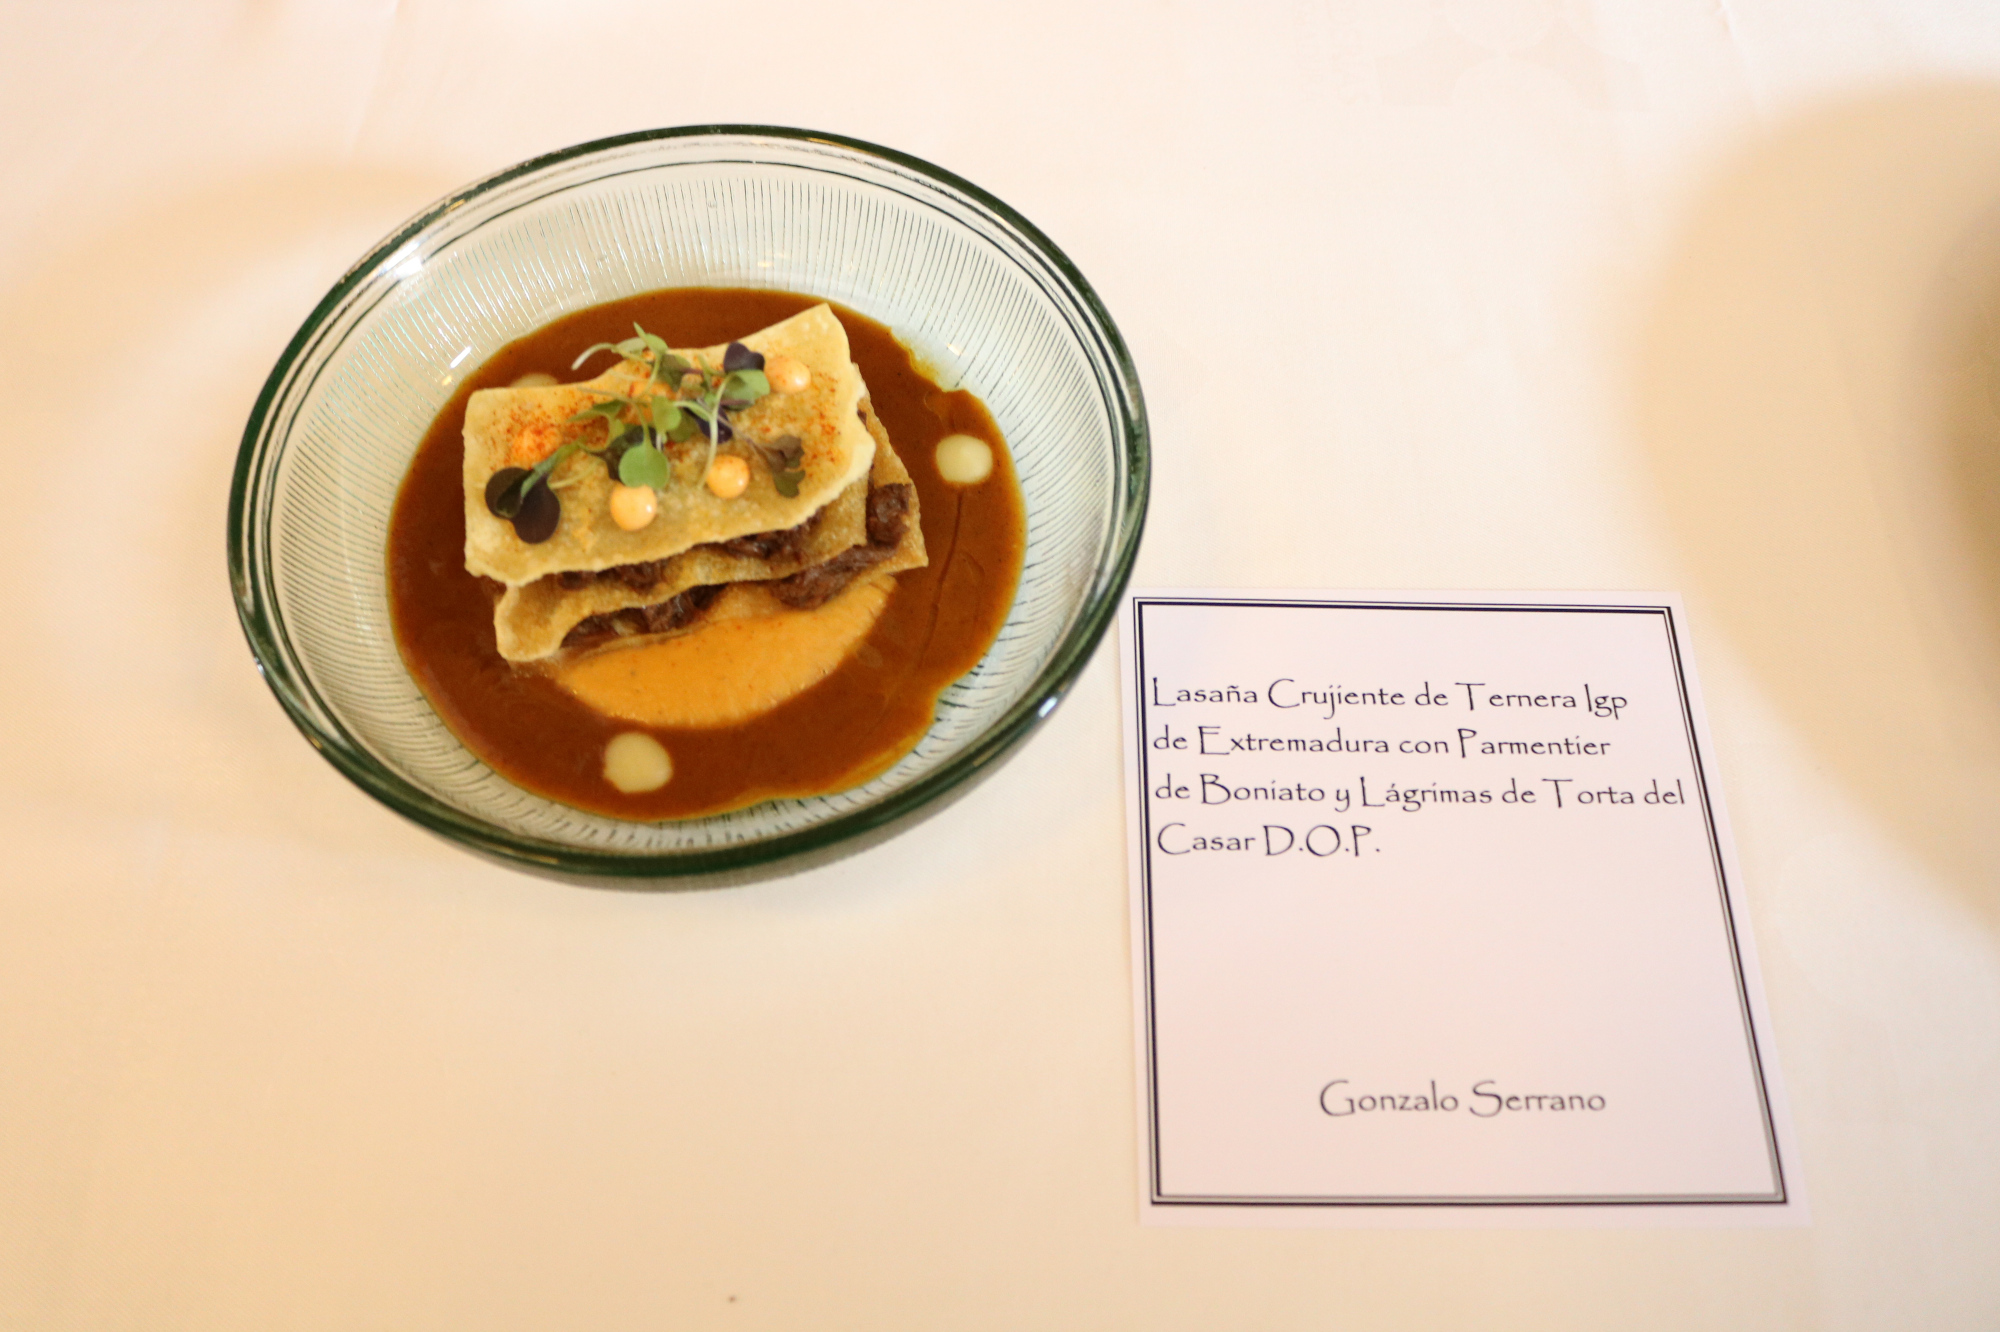 Lasaña Crujiente de Ternera Igp
de Extremadura con Parmentier
de Boniato y Lágrimas de Torta del
Casar D.O.P.
Gonzalo Serrano